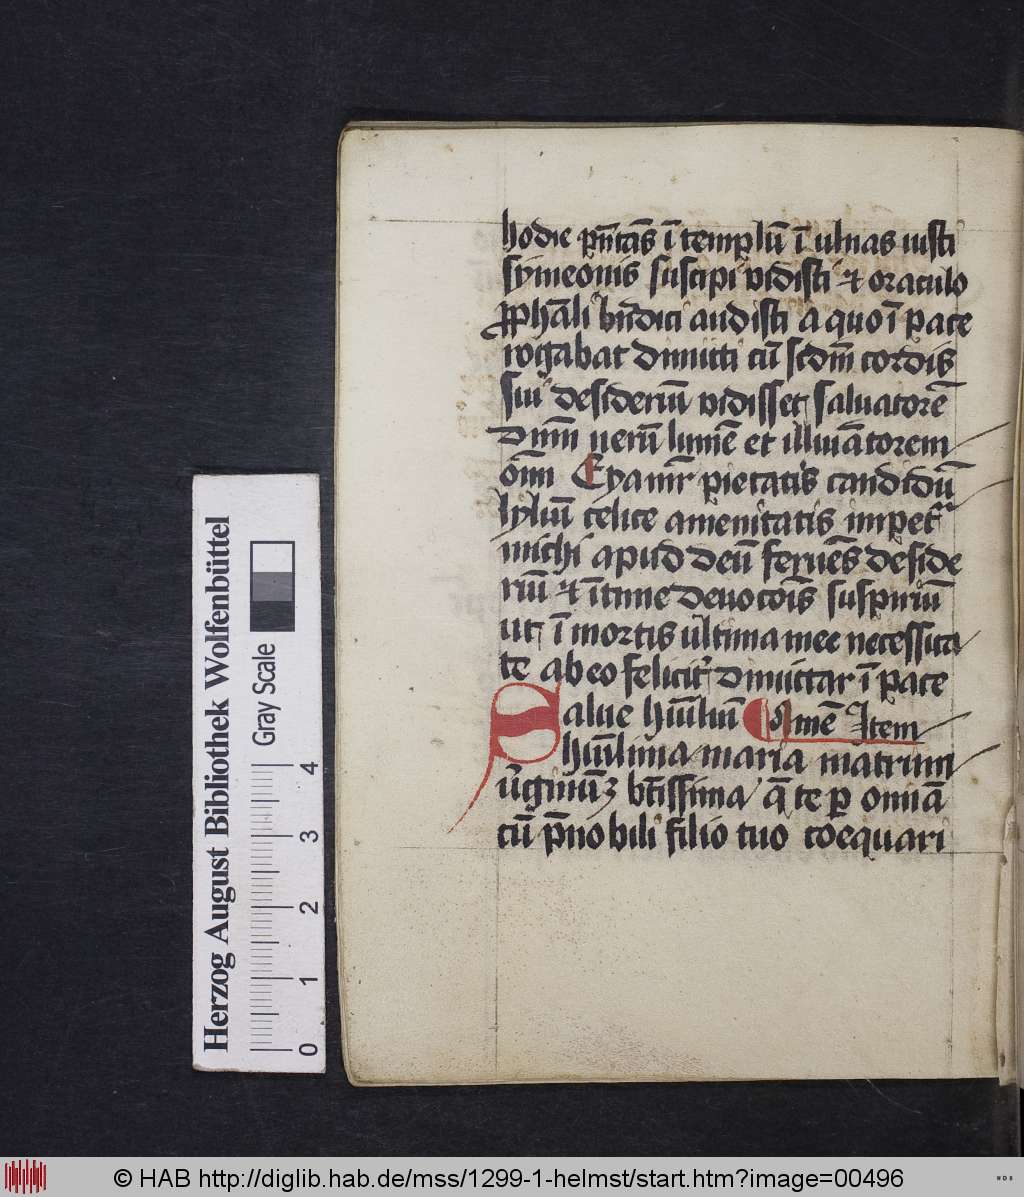 hodie pn̄tās ī templū ī ulnas iusti
symeonis suscipi vidisti ⁊ oraculo
ꝓphāli bn̄dici audisti a quo ī pace
rogabat dimitti cū scdm̄ cordis
sui desideriū vidisset saluatorē
dnm̄ uerū lumē et illuīatorem
oīm Eya mr̄ pietatis candidū
lyliū celice amenitatis impetᷓ
michi apud deū feruēs deside
riū ⁊ ītime deuocōis suspiriū
ut ī mortis ultima mee necessita
te ab eo feliciṫ dimittar ī pace
Amē Item
Salue hūilium
hūilima maria matrum
v̓ginūꝫ btīssima q̄ te ꝑ omīa
cū p̄nobili filio tuo coequari
Herzog August Bibliothek Wolfenbüttel
Gray Scale
0 1 2 3 4
© HAB http://diglib.hab.de/mss/1299-1-helmst/start.htm?image=00496